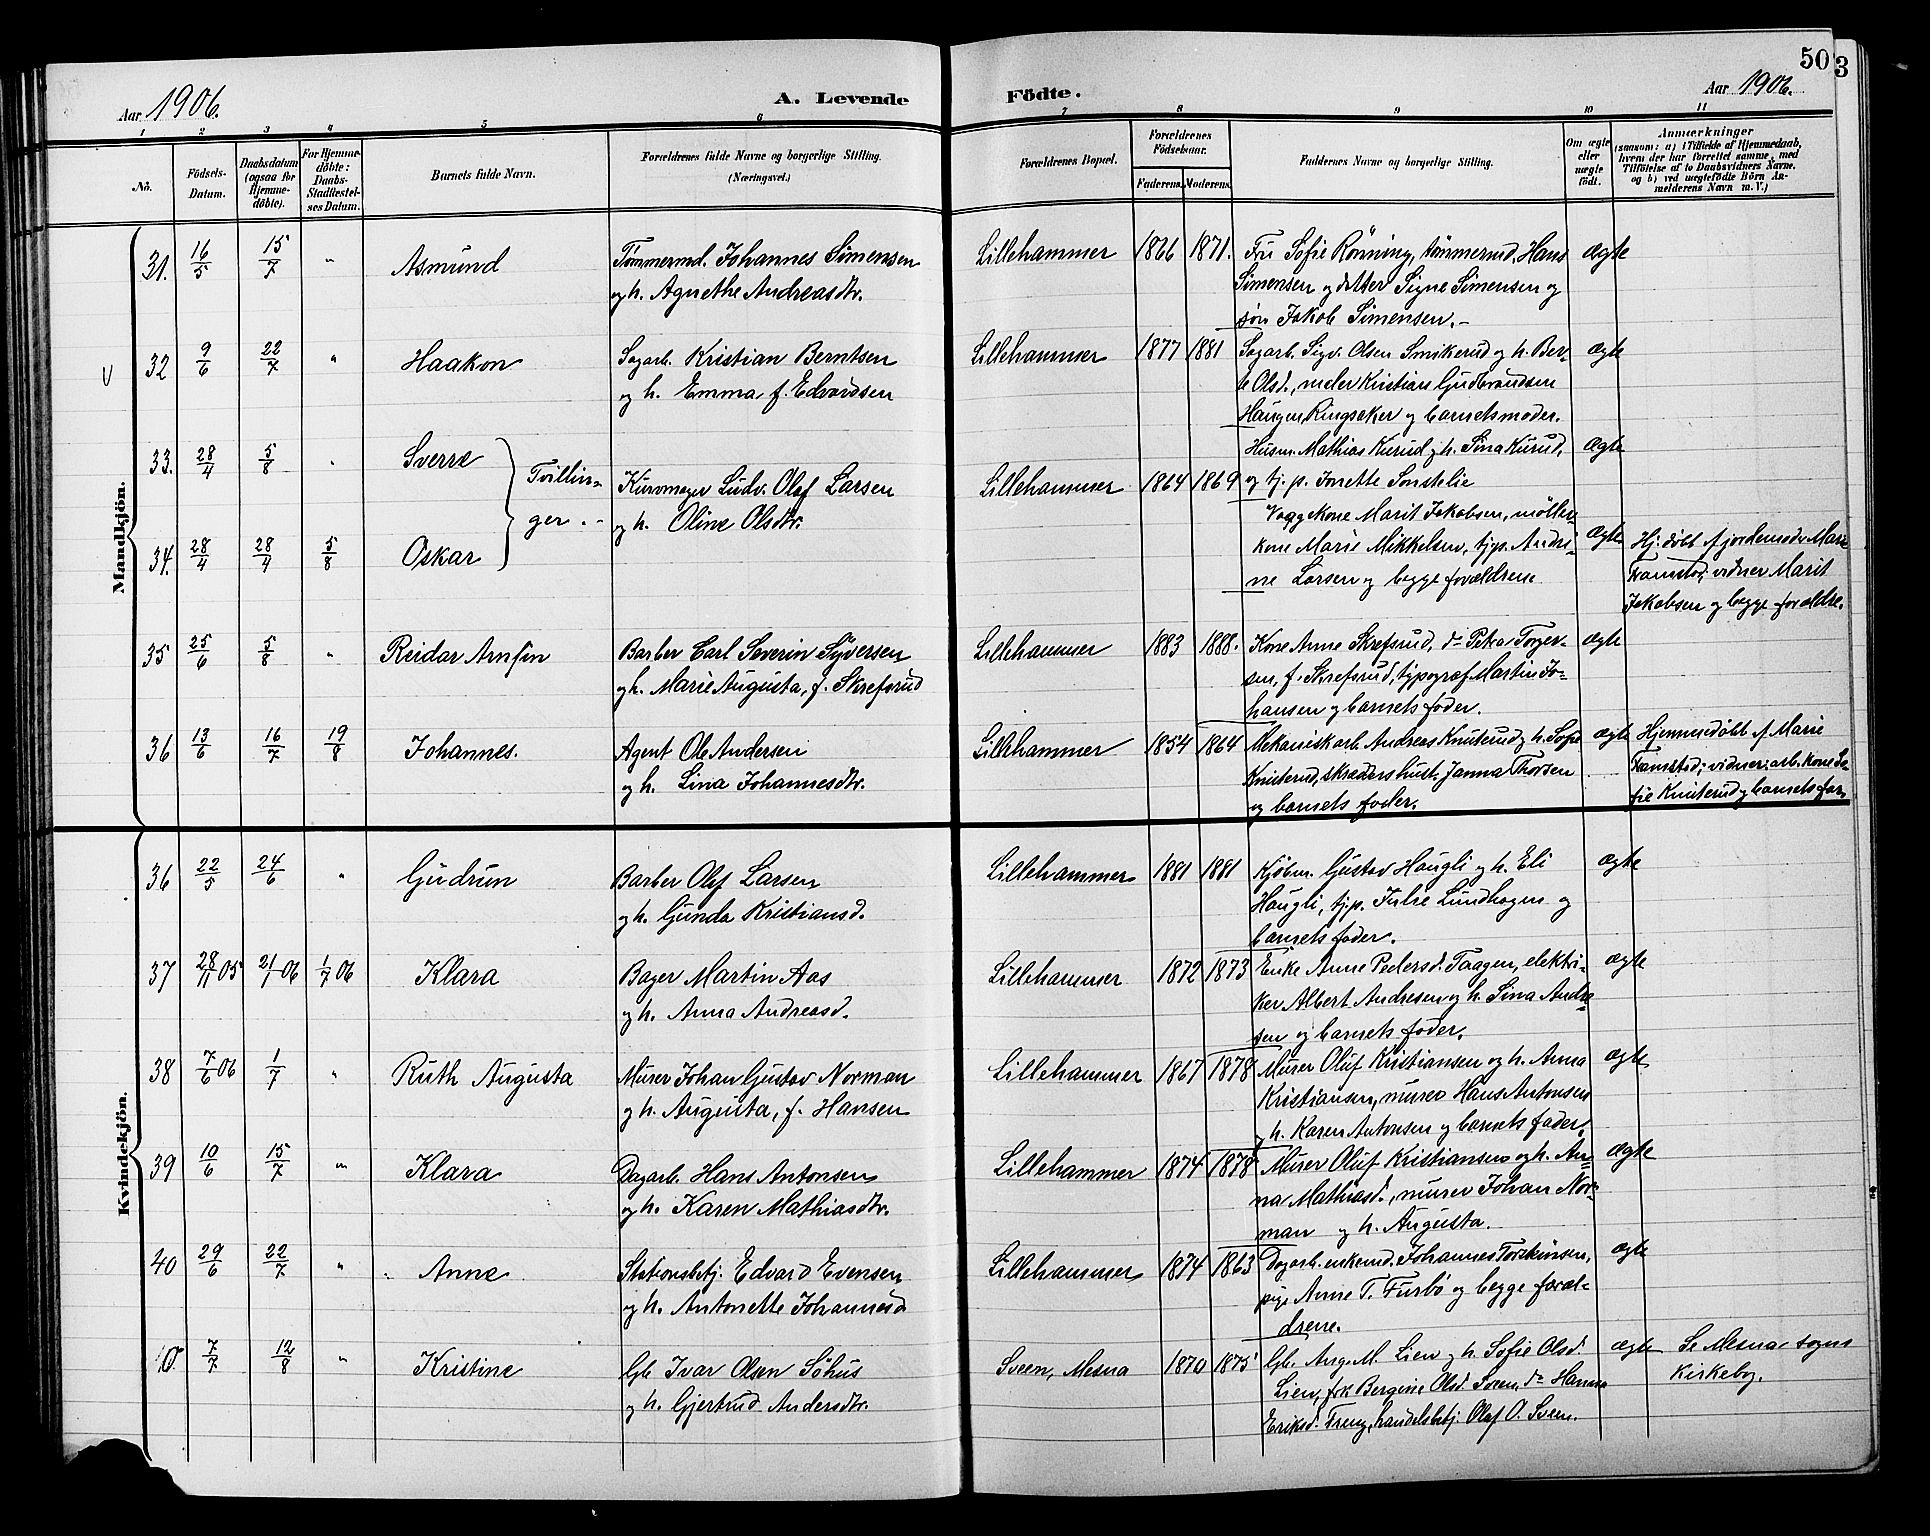 50
3
Aar 1906.
A. Levende Födte.
Aar 1906.
1 2 3 4 5 6 7 8 9 10 11
No.
Födsels-Datum.
Daabsdatum (ogsaa for Hjemme-döbte).
For Hjemme-döbte: Daabs-Stadfæstel-ses Datum.
Barnets fulde Navn.
Forældrenes fulde Navne og borgerlige Stilling. (Næringsvei.)
Forældrenes Bopæl.
Forældrenes Födselsaar.
Faderens. Moderens.
Faddernes Navne og borgerlig Stilling.
Om ægte eller uægte födt.
Anmærkninger (saasom: a) i Tilfælde af Hjemmedaab, hvem der har forrettet samme, med Tilföielse af to Daabsvidners Navne, og b) ved uægtefödte Börn Anmelderens Navn m. V.)
Mandkjön.
31. 16/5 15/7 " Asmund
Tømmermd. Johannes Simensen
og h. Agnethe Andreasdtr.
Lillehammer 1866 1871.
Fru Sofie Rönning, tömmermd. Hans
Simensen og datter Signe Simensen og
sön Jakob Simensen.-
Ægte
32 9/6 22/7 " Haakon
Sagarb. Kristian Berntsen
og h. Emma f. Edvardsen
Lillehammer 1877 1881
Sagarb. Sigv. Olsen Smikerud og h. Ber-
te Olsd., maler Kristian Gudbrandsen
Haugen, Ringsaker og barnets moder.
Ægte
33. 28/4 5/8 " Sverre
Tvillin-
ger.-
Kurvmager Ludv. Olaf Larsen
og h. Oline Olsdtr.
Lillehammer 1864 1869
Husm. Mathias Kurud og h. Sina Kurud,
og tj. p. Jonette Sonstelie
Ægte
34. 28/4 28/4 5/8 Oskar
Væggekone Marit Jakobsen, møller-
kone Marie Mikkelsen, tjp. Andri-
ne Larsen og begge forældrene
Ægte
Hj. døbt af jordemoder Marie
Framstad; vidner Marit
Jakobsen og begge forældre.
35 25/6 5/8 " Reidar Arnfin
Barber Carl Severin Syversen
og h. Marie Augusta, f. Skrefsrud
Lillehammer 1883 1888.
Kone Anne Skrefsrud, do Petra Torger-
sen, f. Skrefsrud, typograf Martin Jo-
hansen og barnets fader.
Ægte
36 13/6 16/7 19/8 Johannes.
Agent Ole Andersen
og h. Lina Johannesdtr.
Lillehammer 1854 1864
Mekanisk arb. Andreas Knuterud og h. Sofie
Knuterud, skræders hust. Janna Thorsen
og barnets fader.
Ægte
Hjemmedøbt af Marie
Framstad; vidner: arb. kone So-
fie Knuterud og barnets far.
Kvindekjön.
36 22/5 24/6 " Gudrun
Barber Olaf Larsen
og h. Gunda Kristiansd.
Lillehammer 1881 1881
Kjøbm. Gustav Haugli og h. Eli
Haugli, tj.p. Julie Lundhagen og
barnets fader.
Ægte
37 28/11 05 21/1 06 1/7 06 Klara
Bager Martin Aas
og h. Anna Andreasd.
Lillehammer 1872 1873
Enke Anne Pedersd. Haagen, elektri-
ker Albert Andresen og h. Sina Andre-
sen og barnets fader.
Ægte
38 7/6 06 1/7 " Ruth Augusta
Murer Johan Gustav Norman
og h. Augusta, f. Hansen
Lillehammer 1867 1878
Murer Oluf Kristiansen og h. Anna
Kristiansen, murer Hans Antonsen
og h. Karen Antonsen og barnets fader.
Ægte
39 10/6 15/7 " Klara
Dagarb. Hans Antonsen
og h. Karen Mathiasdtr.
Lillehammer 1874 1878
Murer Oluf Kristiansen og h. An-
na Mathiasd., murer Johan Nor-
man og h. Augusta.
Ægte
40 29/6 22/7 " Anne
Stationsbetj. Edvard Evensen
og h. Antonette Johannesd
Lillehammer 1874 1863
Dagarb. enkemd. Johannes Torstensen,
pige Anne T. Furbø og begge foræl-
drene.
Ægte
7/7 12/8 " Kristine
Gb. Ivar Olsen Söhus
og h. Gjertrud Andersdtr.
Sveen, Mesna 1870 1875
Gb. Aug. M. Lien og h. Sofie Olsd.
Lien, frk Bergine Olsd. Sveen, do Hanna
Eriksd. Treng, handelsbetj. Olaf O. Sveen.
Ægte
Se Mesna sogns
kirkebog.